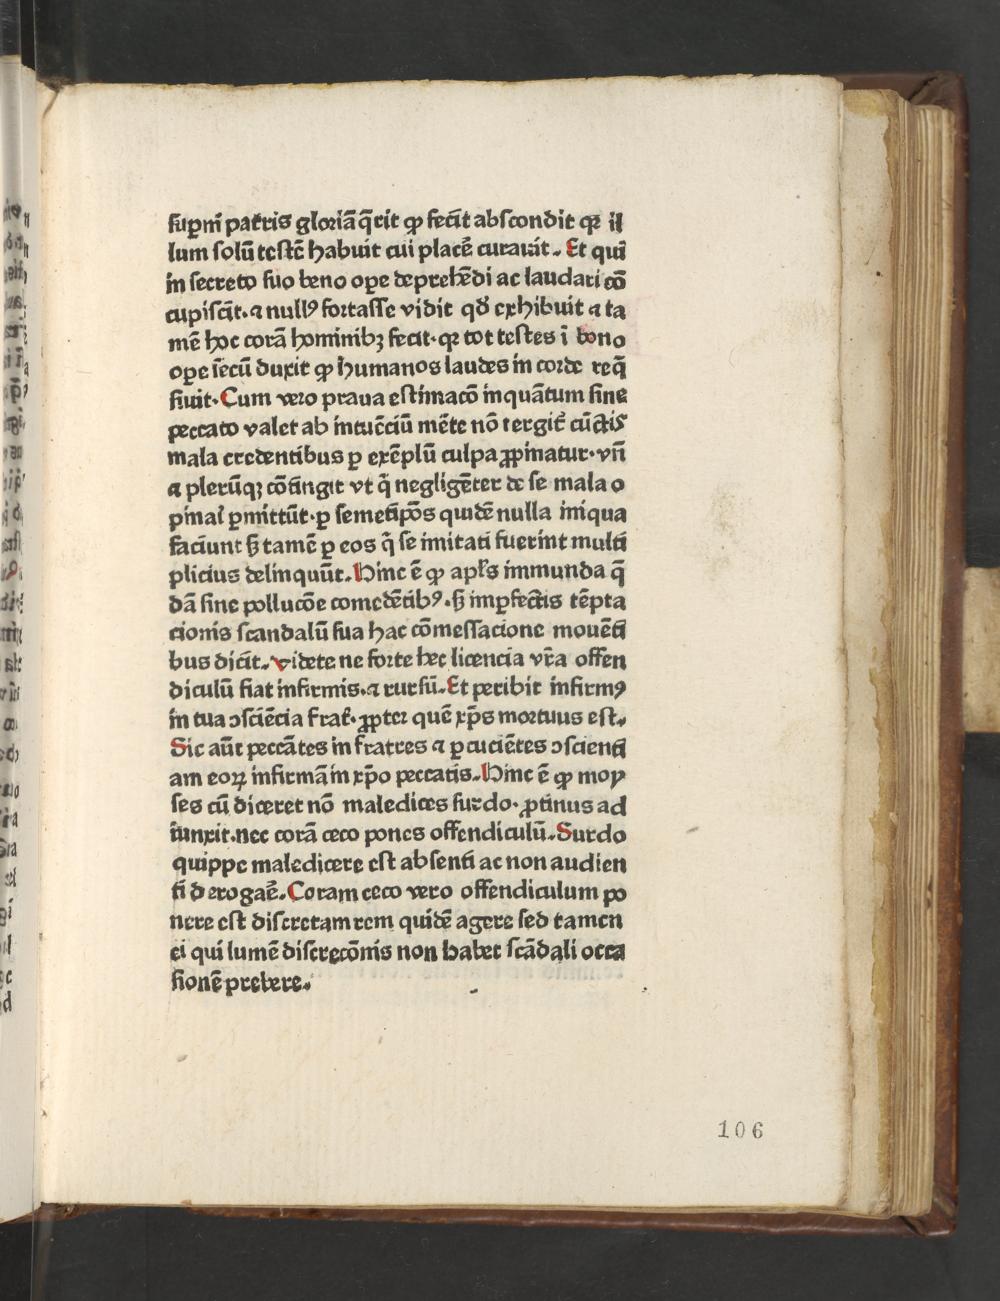 supni patris gloriā q̄rit ꝙ fecit abscondit qꝛ il
lum solū testē habuit cui placē curavit. Et qui
in secreto suo beno oꝑe deprehēdi ac laudari cō
cupiscit. ⁊ nullꝰ fortasse vidit qđ exhibuit ⁊ ta
mē hoc corā hominibꝫ fecit. qꝛ tot testes ī bono
oꝑe sēcū duxit ꝙ humanos laudes in corde req̄
siuit. Cum vero praua estimacō inquātum sine
peccato valet ab intuēciū mēte nō tergit̄ cūctis
mala credentibus ꝑ exēplū culpa ꝓpinatur. vñ
⁊ plerūqꝫ cōtingit vt q̄ negligēter de se mala o
pinai ꝑmittūt. ꝑ semetipōs quidē nulla iniqua
faciunt ꜱꝫ tamē ꝑ eos q̄ se imitati fuerint multi
plicius delinquūt. Hinc ē ꝙ apɫs immunda q̄
dā sine pollucōe comedētibꝰ. ꜱꝫ imꝑfectis tēpta
cionis scandalū sua hac cōmessacione mouēti
bus dicit. videte ne forte hec licencia vr̄a offen
diculū fiat infirmis. ⁊ rursū. Et peribit infirmꝰ
in tua ꝯsciēcia frat̄. ꝓpter quē xp̄s mortuus est.
Sic aūt peccātes in fratres ⁊ ꝑcuciētes ꝯscienti
am eoꝝ infirmā in xp̄o peccatis. Hinc ē ꝙ moy
ses cū diceret nō maledices surdo. ꝓtinus ad
iunxit. nec corā ceco pones offendiculū. Surdo
quippe maledicere est absenti ac non audien
ti derogaē. Coram ceco vero offendiculum po
nere est discretam rem quidē agere sed tamen
ei qui lumē discrecōnis non habet scādali occa
sionē prebere.
106